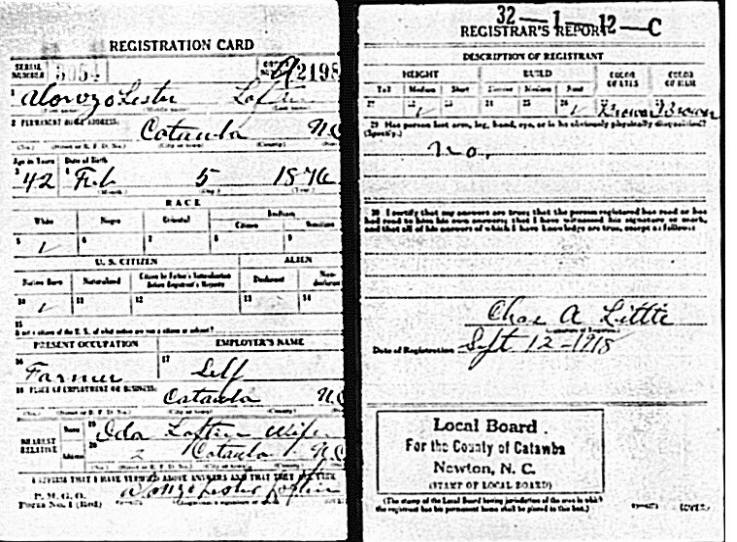 REGISTRATION CARD
SERIAL NUMBER 3054
A2198
1 Alonzo Lester Loftin
2 PERMANENT HOME ADDRESS:
Catawba NC
(No.) (Street or R. F. D. No.) (City or town) (County)
Age in Years Date of Birth
3 42 4 Feb 5 1876
(Month.) (Day.) (Year.)
RACE
White Negro Oriental Indian
Citizen Noncitizen
5 ✓ 6 7 8 9
U. S. CITIZEN ALIEN
Native Born Naturalized Citizen by Father's Naturalization Before Registrant's Majority Declarant Non-declarant
10 ✓ 11 12 13 14
15
If not a citizen of the U. S., of what nation are you a citizen or subject?
PRESENT OCCUPATION EMPLOYER'S NAME
16 Farmer 17 Self
18 PLACE OF EMPLOYMENT OR BUSINESS:
Catawba NC
(No.) (Street or R. F. D. No.) (City or town) (County)
NEAREST RELATIVE Name 19 Ida Loftin Wife
Address 20 2 Catawba NC
(No.) (Street or R. F. D. No.) (City or town) (County)
I AFFIRM THAT I HAVE VERIFIED ABOVE ANSWERS AND THAT THEY ARE TRUE
P. M. G. O.
Form No. 1 (Red)
Alonzo Lester Loftin
32—1—12—C
REGISTRAR'S REPORT
DESCRIPTION OF REGISTRANT
HEIGHT BUILD COLOR OF EYES COLOR OF HAIR
Tall Medium Short Slender Medium Stout
21 22 ✓ 23 24 25 26 ✓ 27 Brown 28 Brown
29 Has person lost arm, leg, hand, eye, or is he obviously physically disqualified?
(Specify.)
no.
30 I certify that my answers are true; that the person registered has read or has
had read to him his own answers; that I have witnessed his signature or mark,
and that all of his answers of which I have knowledge are true, except as follows:
Chas A Little
Date of Registration Sept. 12—1918
Local Board
For the County of Catawba
Newton, N. C.
(STAMP OF LOCAL BOARD)
(The stamp of the Local Board having jurisdiction of the area in which
the registrant has his permanent home shall be placed in this box.)
(OVER)